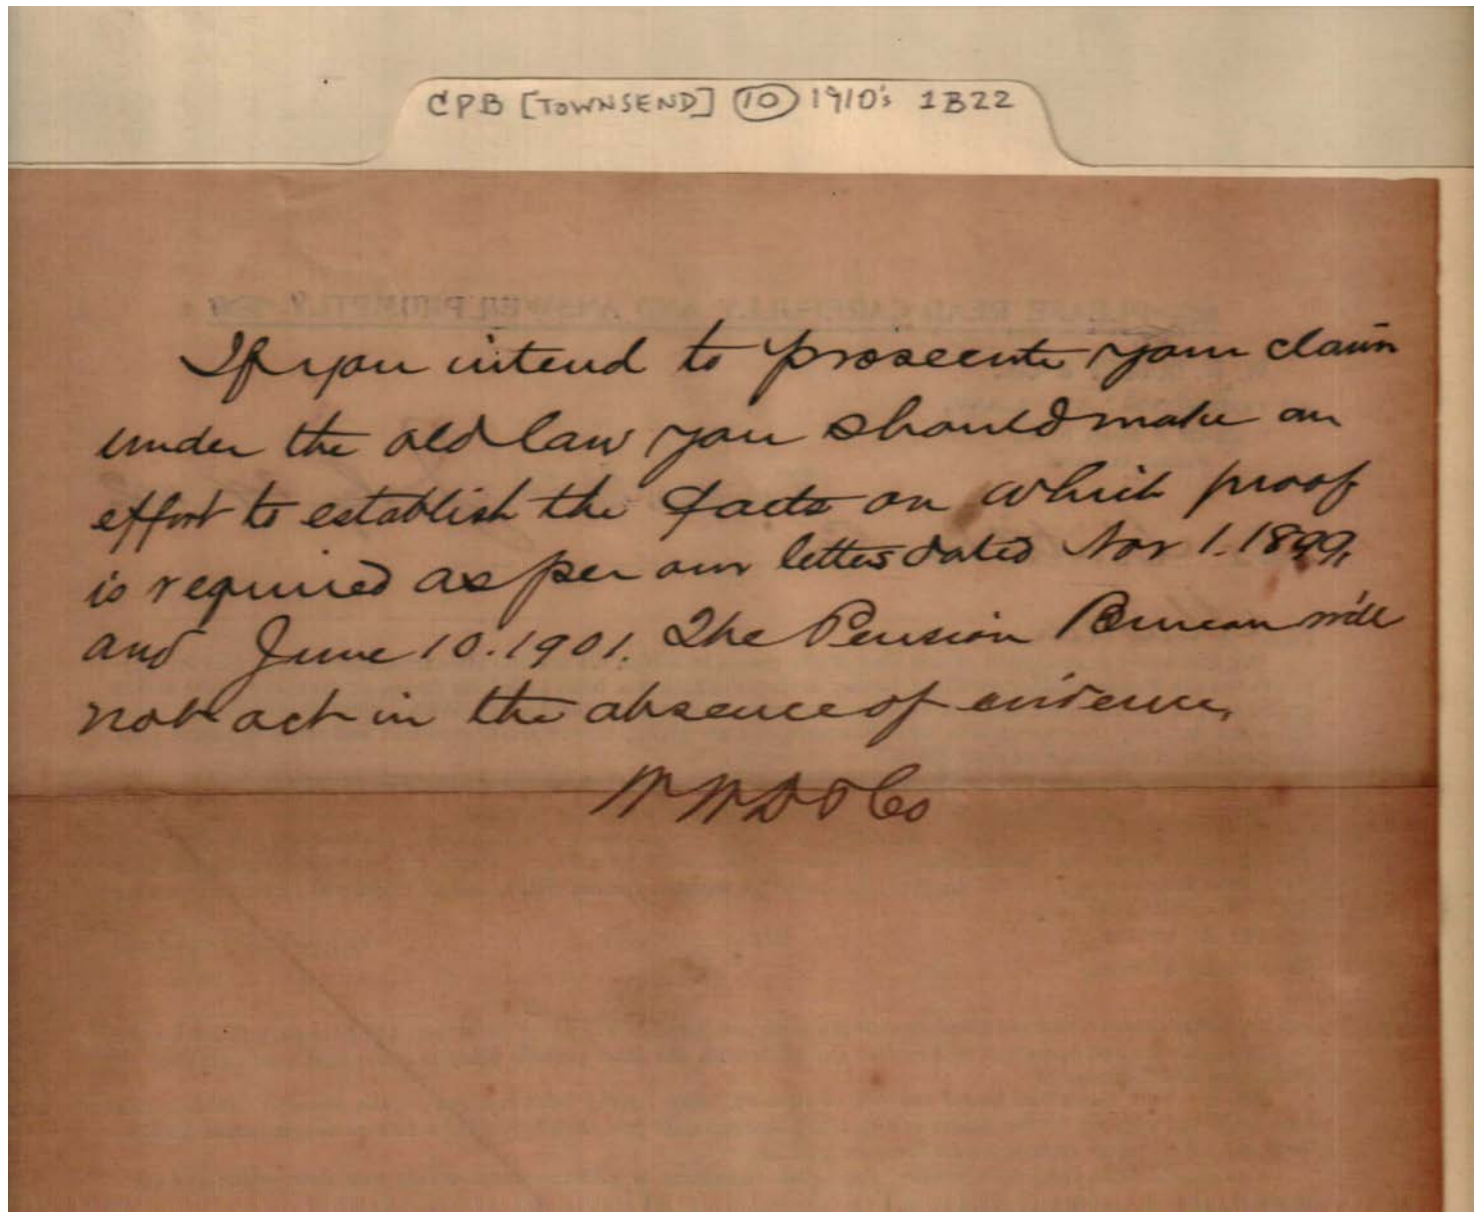 CPB [TOWNSEND] 10 1910's 1B22
PLEASE READ CAREFULLY AND ANSWER PROMPTLY.
If you intend to prosecute your claim
under the old law you should make an
effort to establish the facts on which proof
is required as per our letters dated Nov 1. 1899,
and June 10. 1901. The Pension Bureau will
not act in the absence of evidence,
& Co